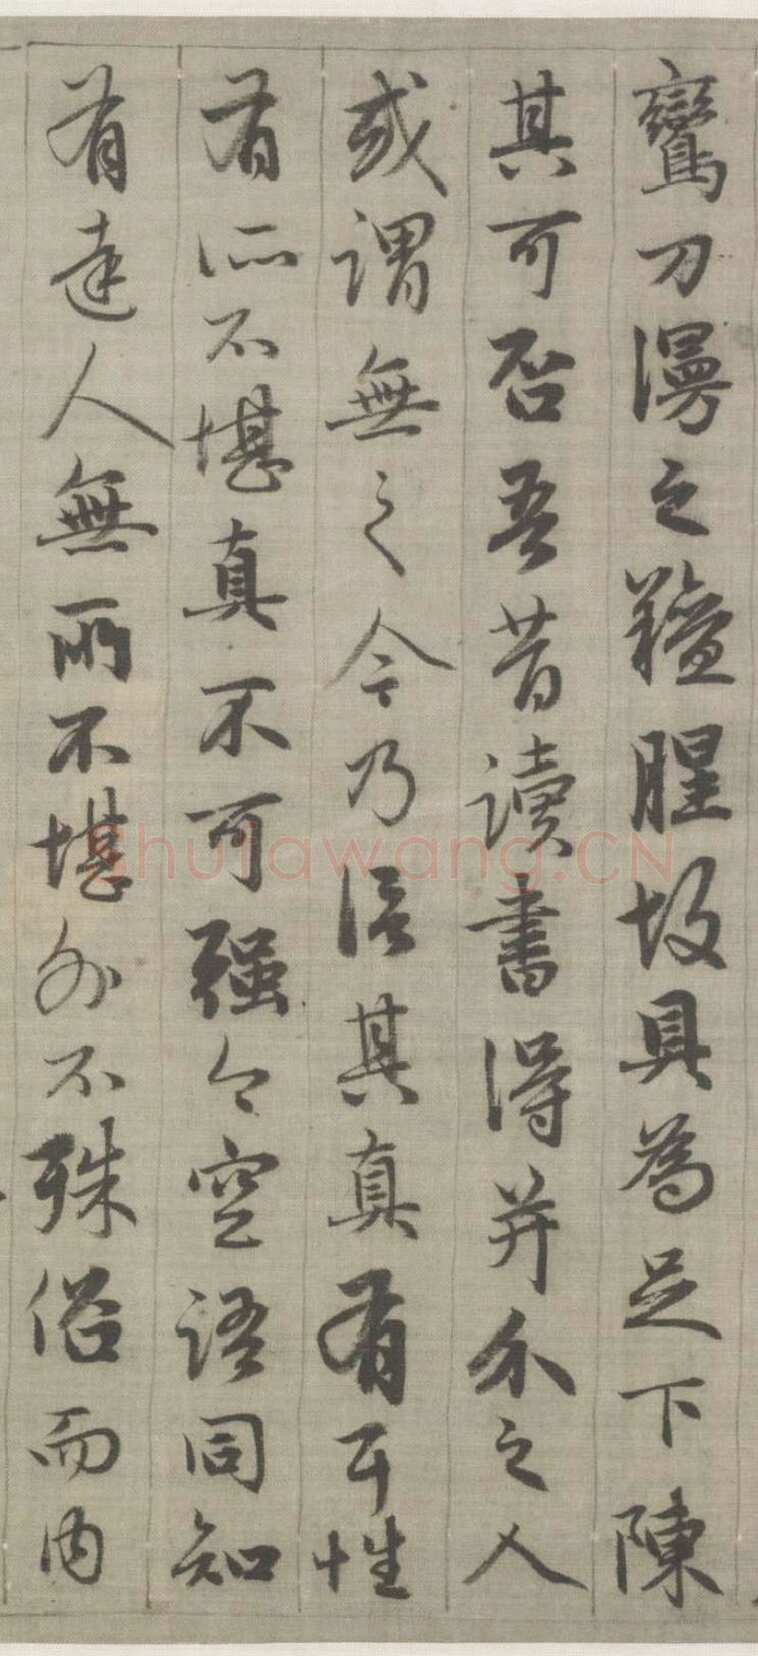 鸞刀漫之羶腥故具為足下陳
其可否吾昔讀書得并介之人
或謂無之今乃信其真有耳性
有所不堪真不可强今空語同知
有達人無所不堪外不殊俗而内
shufawang.CN